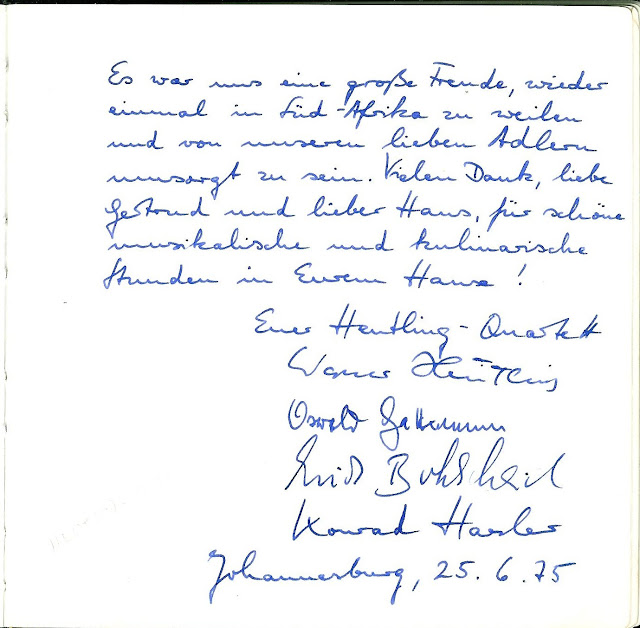 Es war uns eine große Freude, wieder
einmal in Süd-Afrika zu weilen
und von unseren lieben Adlern
umsorgt zu sein. Vielen Dank, liebe
Gertrud und lieber Hans, für schöne
musikalische und kulinarische
Stunden in Eurem Hause!
Euer Heutling-Quartett
Werner Heutling
Oswald Gattermann
Erich Bohlscheid
Konrad Haesler
Johannesburg, 25.6.75